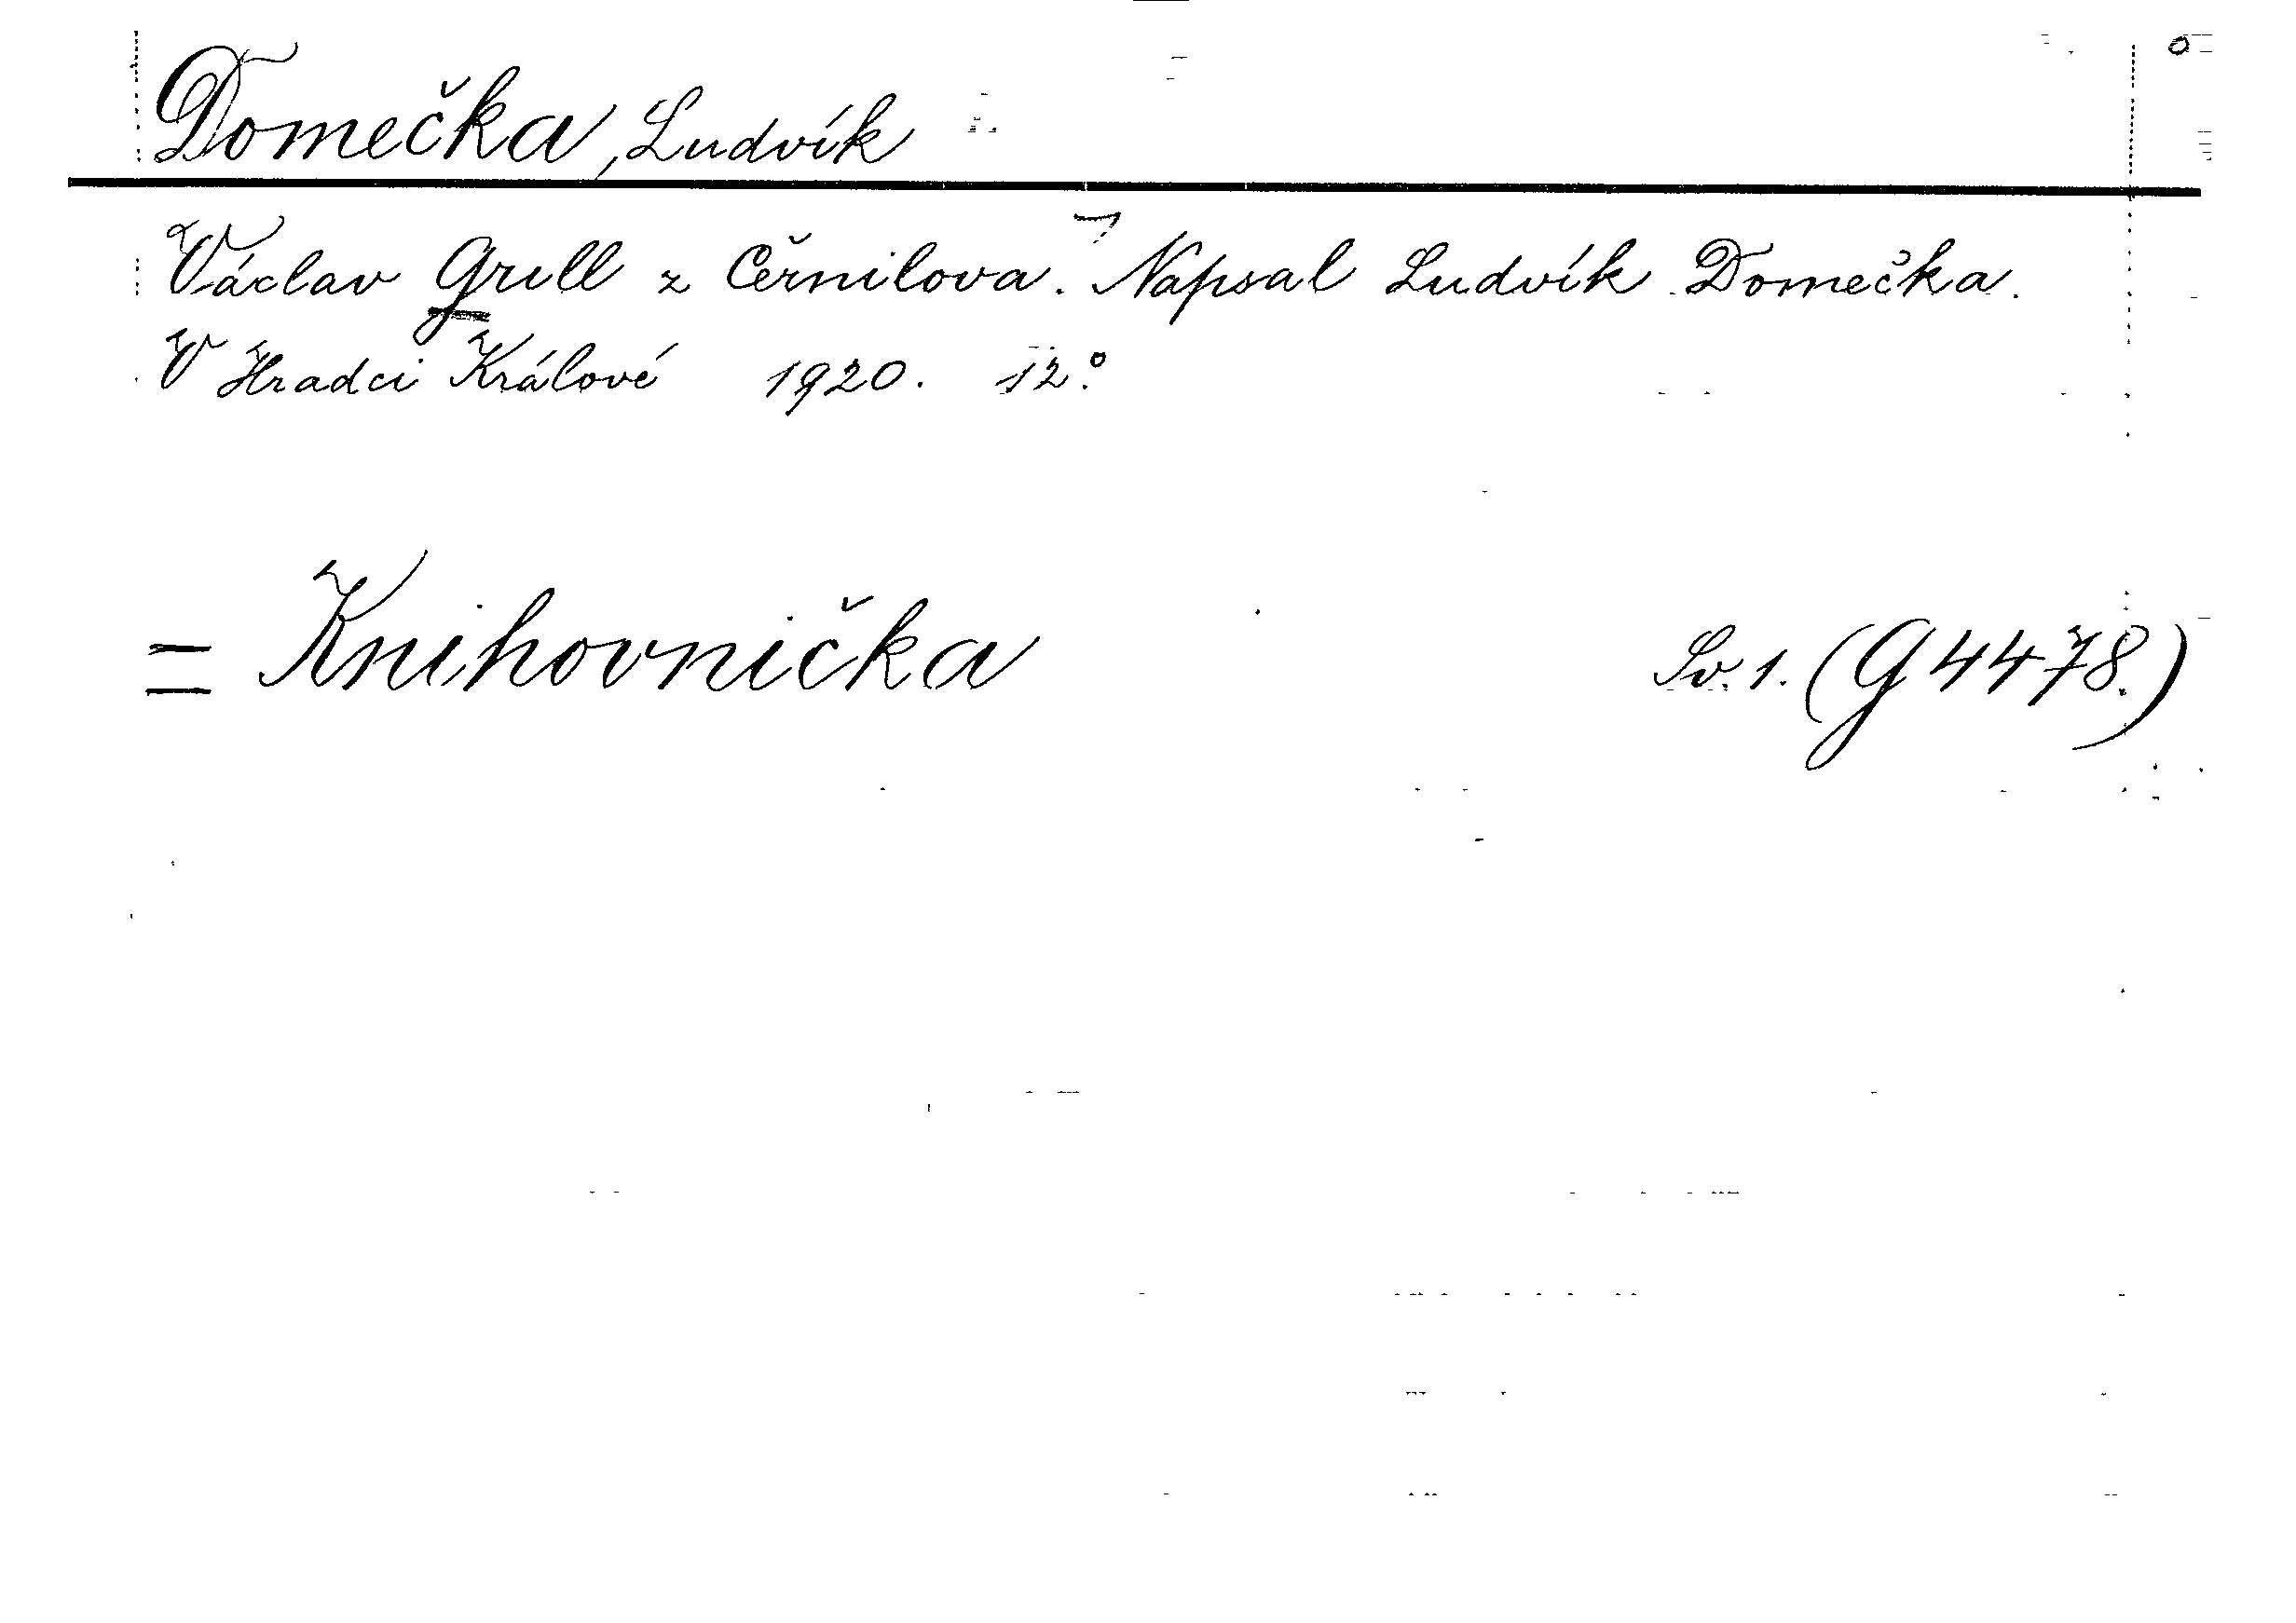 Domečka, Ludvík
Václav Grull z Černilova. Napsal Ludvík Domečka.
V Hradci Králové 1920. 12.º
= Knihovnička Sv. 1. (G 4478.)